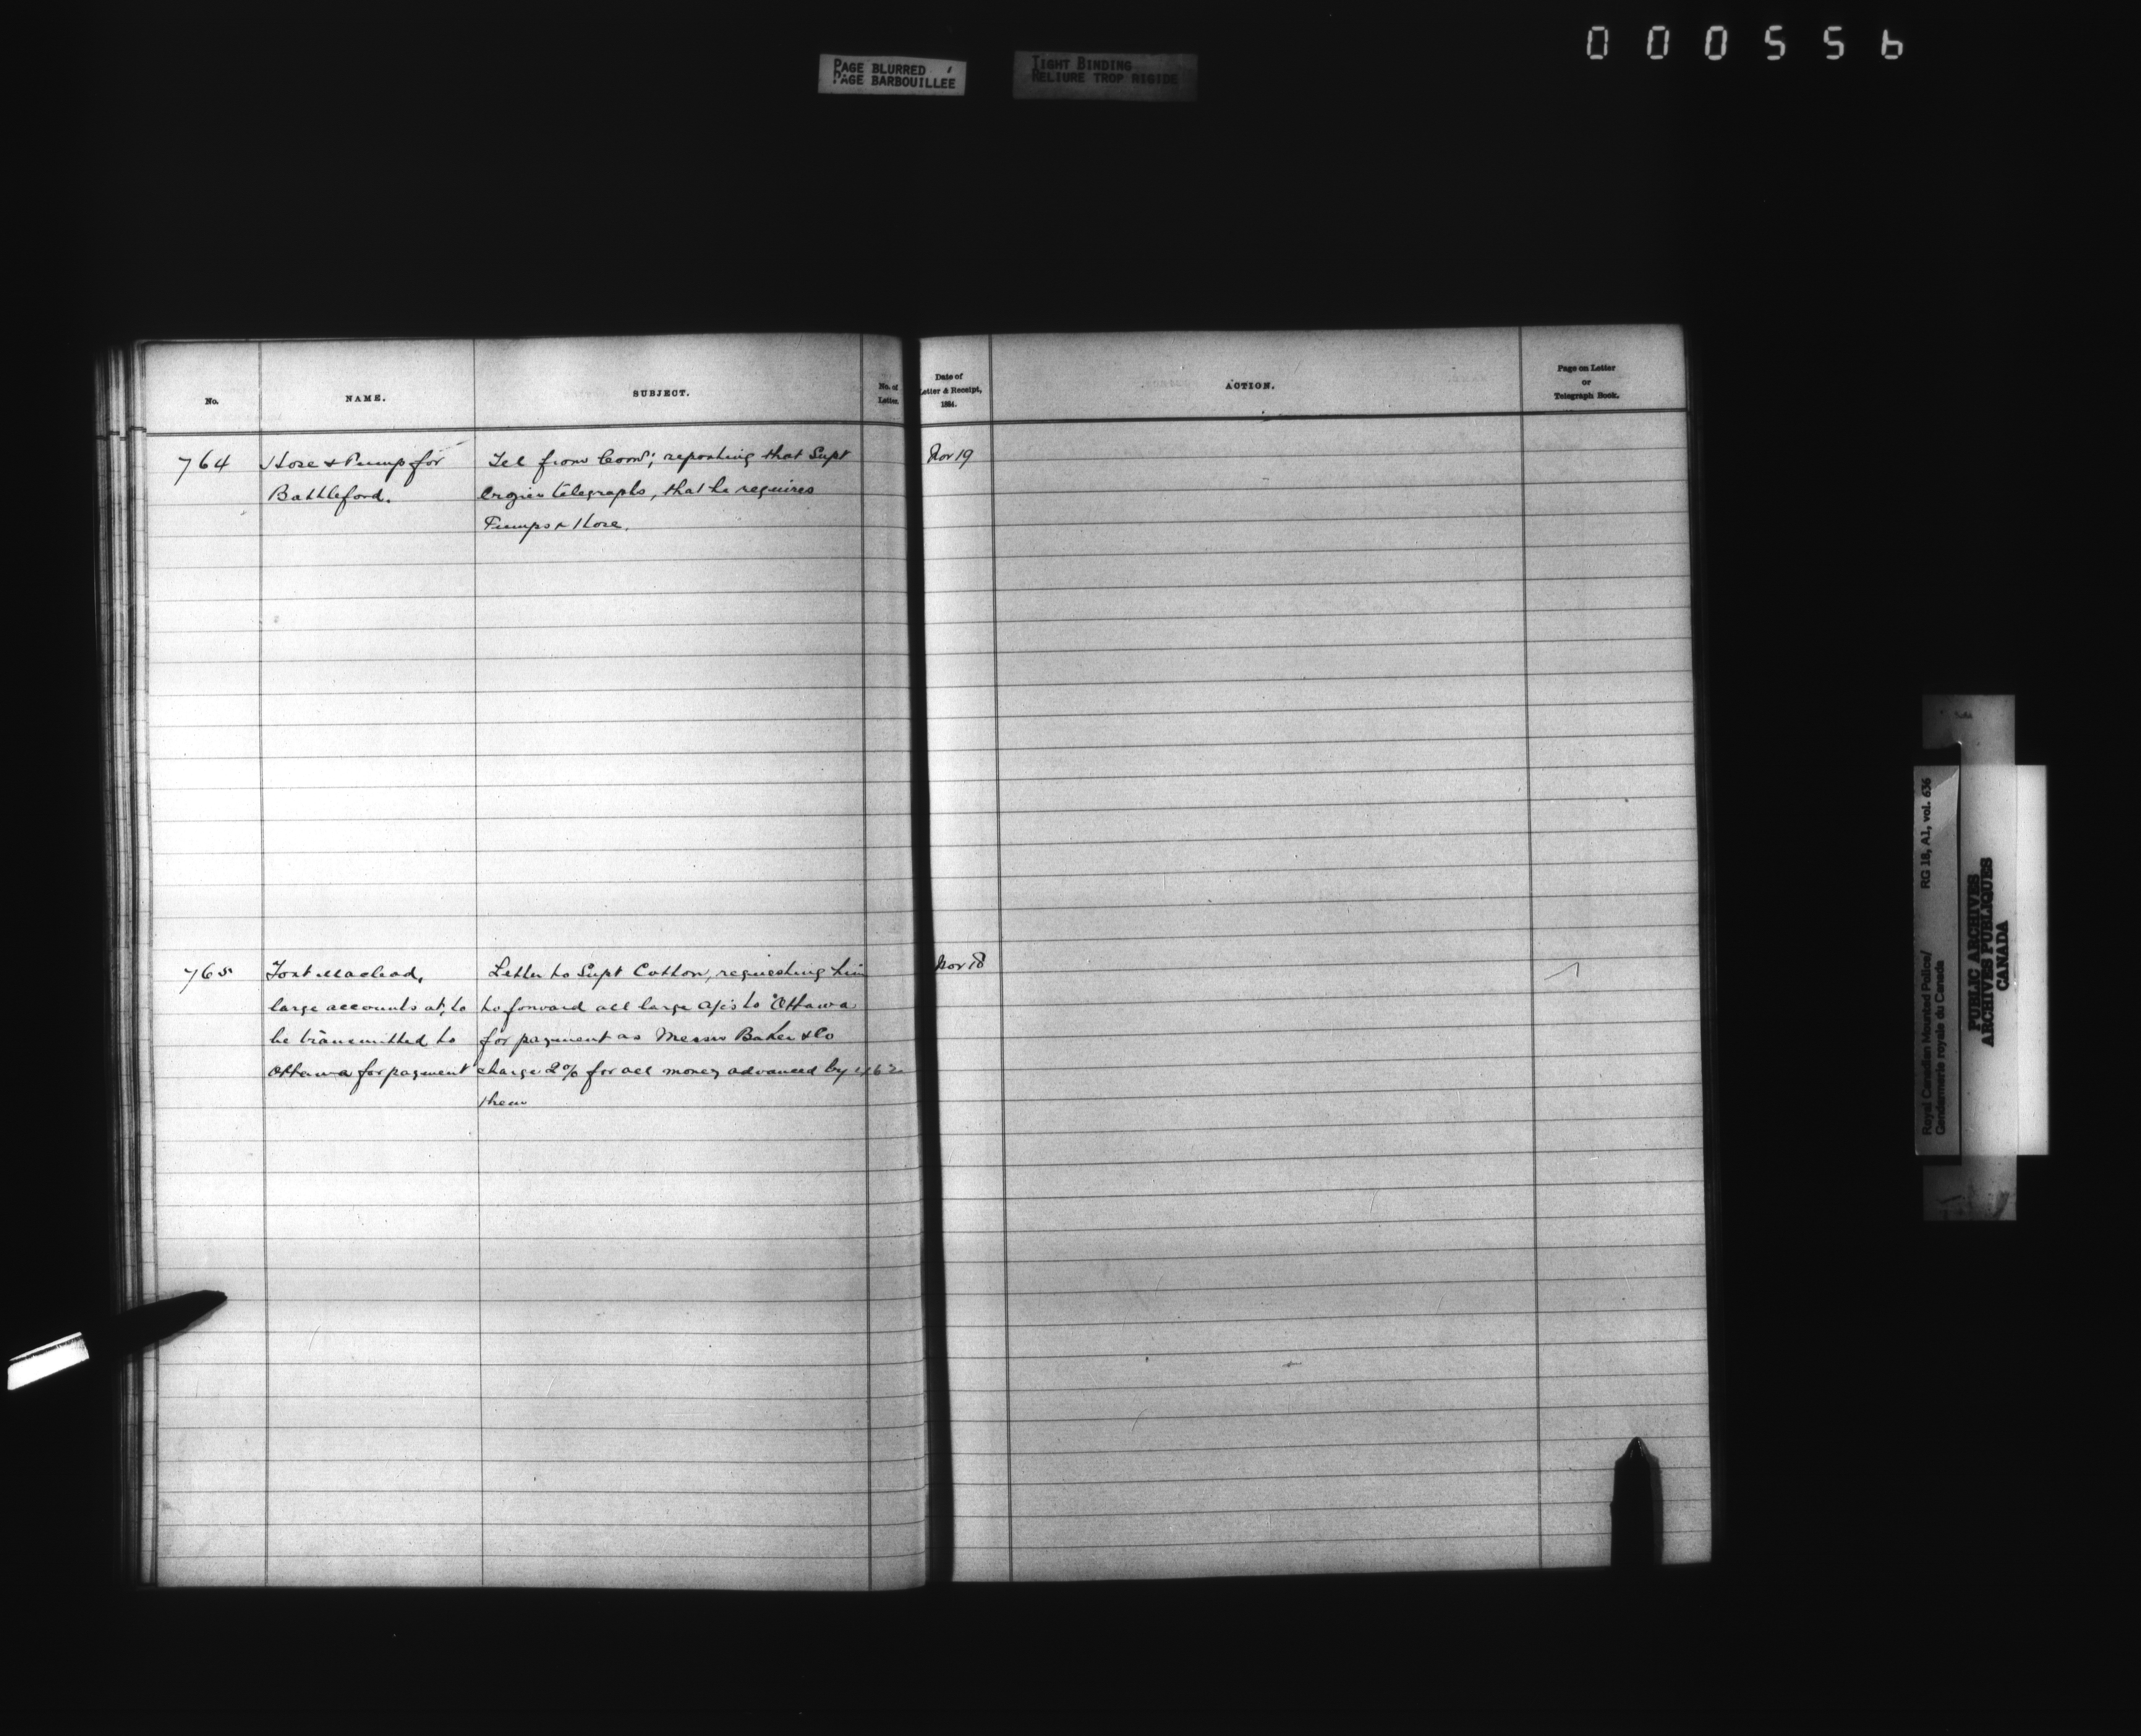 000556
PAGE BLURRED
PAGE BARBOUILLEE
TIGHT BINDING
RELIURE TROP RIGIDE
No.
NAME.
SUBJECT.
No. of
Letter.
Date of
Letter & Receipt,
1884.
ACTION.
Page on Letter
or
Telegraph Book.
764
Hose & Pump for
Battleford.
Tel from Comr; reporting that Supt
Crozier telegraphs, that he requires
Pumps & Hose.
Nov 19
765
Fort Macleod,
large accounts at, to
be transmitted to
Ottawa for payment
Letter to Supt Cotton, requesting him
to forward all large a/cs to Ottawa
for payment as Messrs Baker & Co
charge 2% for all money advanced by
them
Nov 18
Royal Canadian Mounted Police/
Gendarmerie royale du Canada
RG 18, A1, vol. 636
PUBLIC ARCHIVES
ARCHIVES PUBLIQUES
CANADA